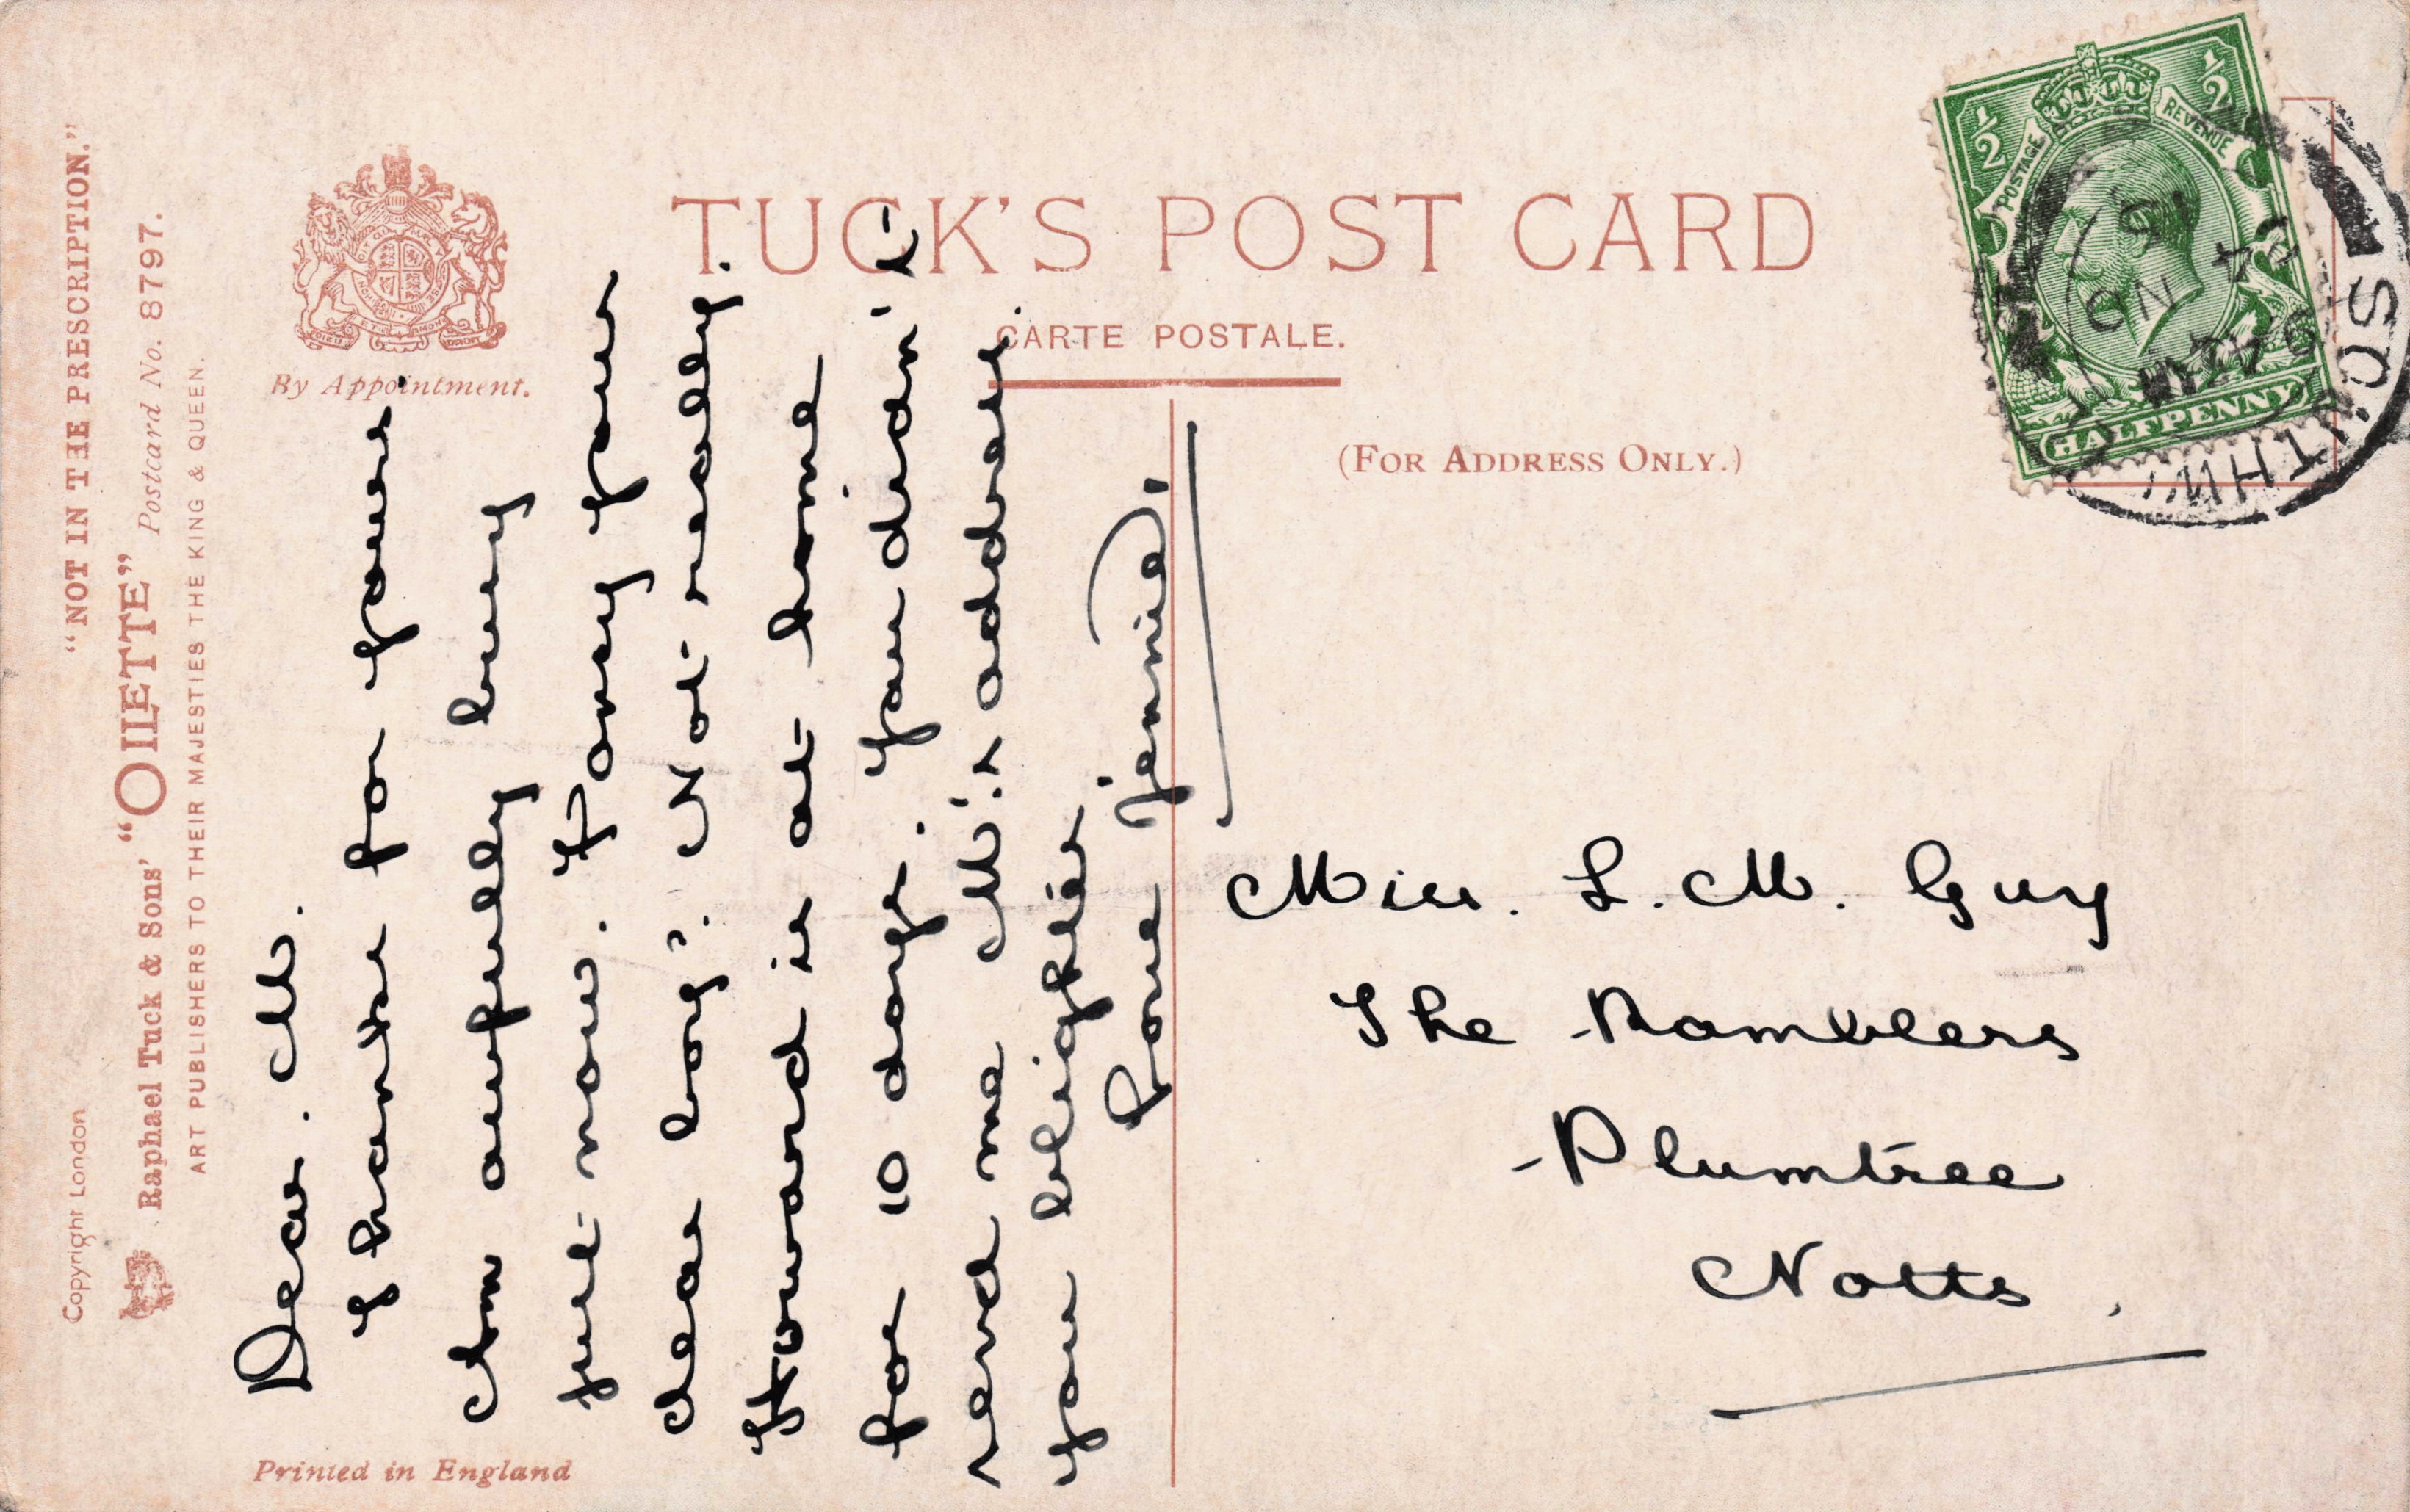 "NOT IN THE PRESCRIPTION."
Copyright London
Raphael Tuck & Sons' "OILETTE" Postcard No. 8797.
ART PUBLISHERS TO THEIR MAJESTIES THE KING & QUEEN.
By Appointment.
TUCK'S POST CARD
CARTE POSTALE.
(FOR ADDRESS ONLY.)
POSTAGE REVENUE
½ ½
HALFPENNY
Dear. M.
Thanks for yours.
Am awfully busy
just now. Fancy your
dear boy". Not really.
Howard is at home
for 10 days. You didn't
send me M's address.
you blighter
Love Jennie,
Miss. L. M. Guy
The Ramblers
Plumtree
Notts.
Printed in England